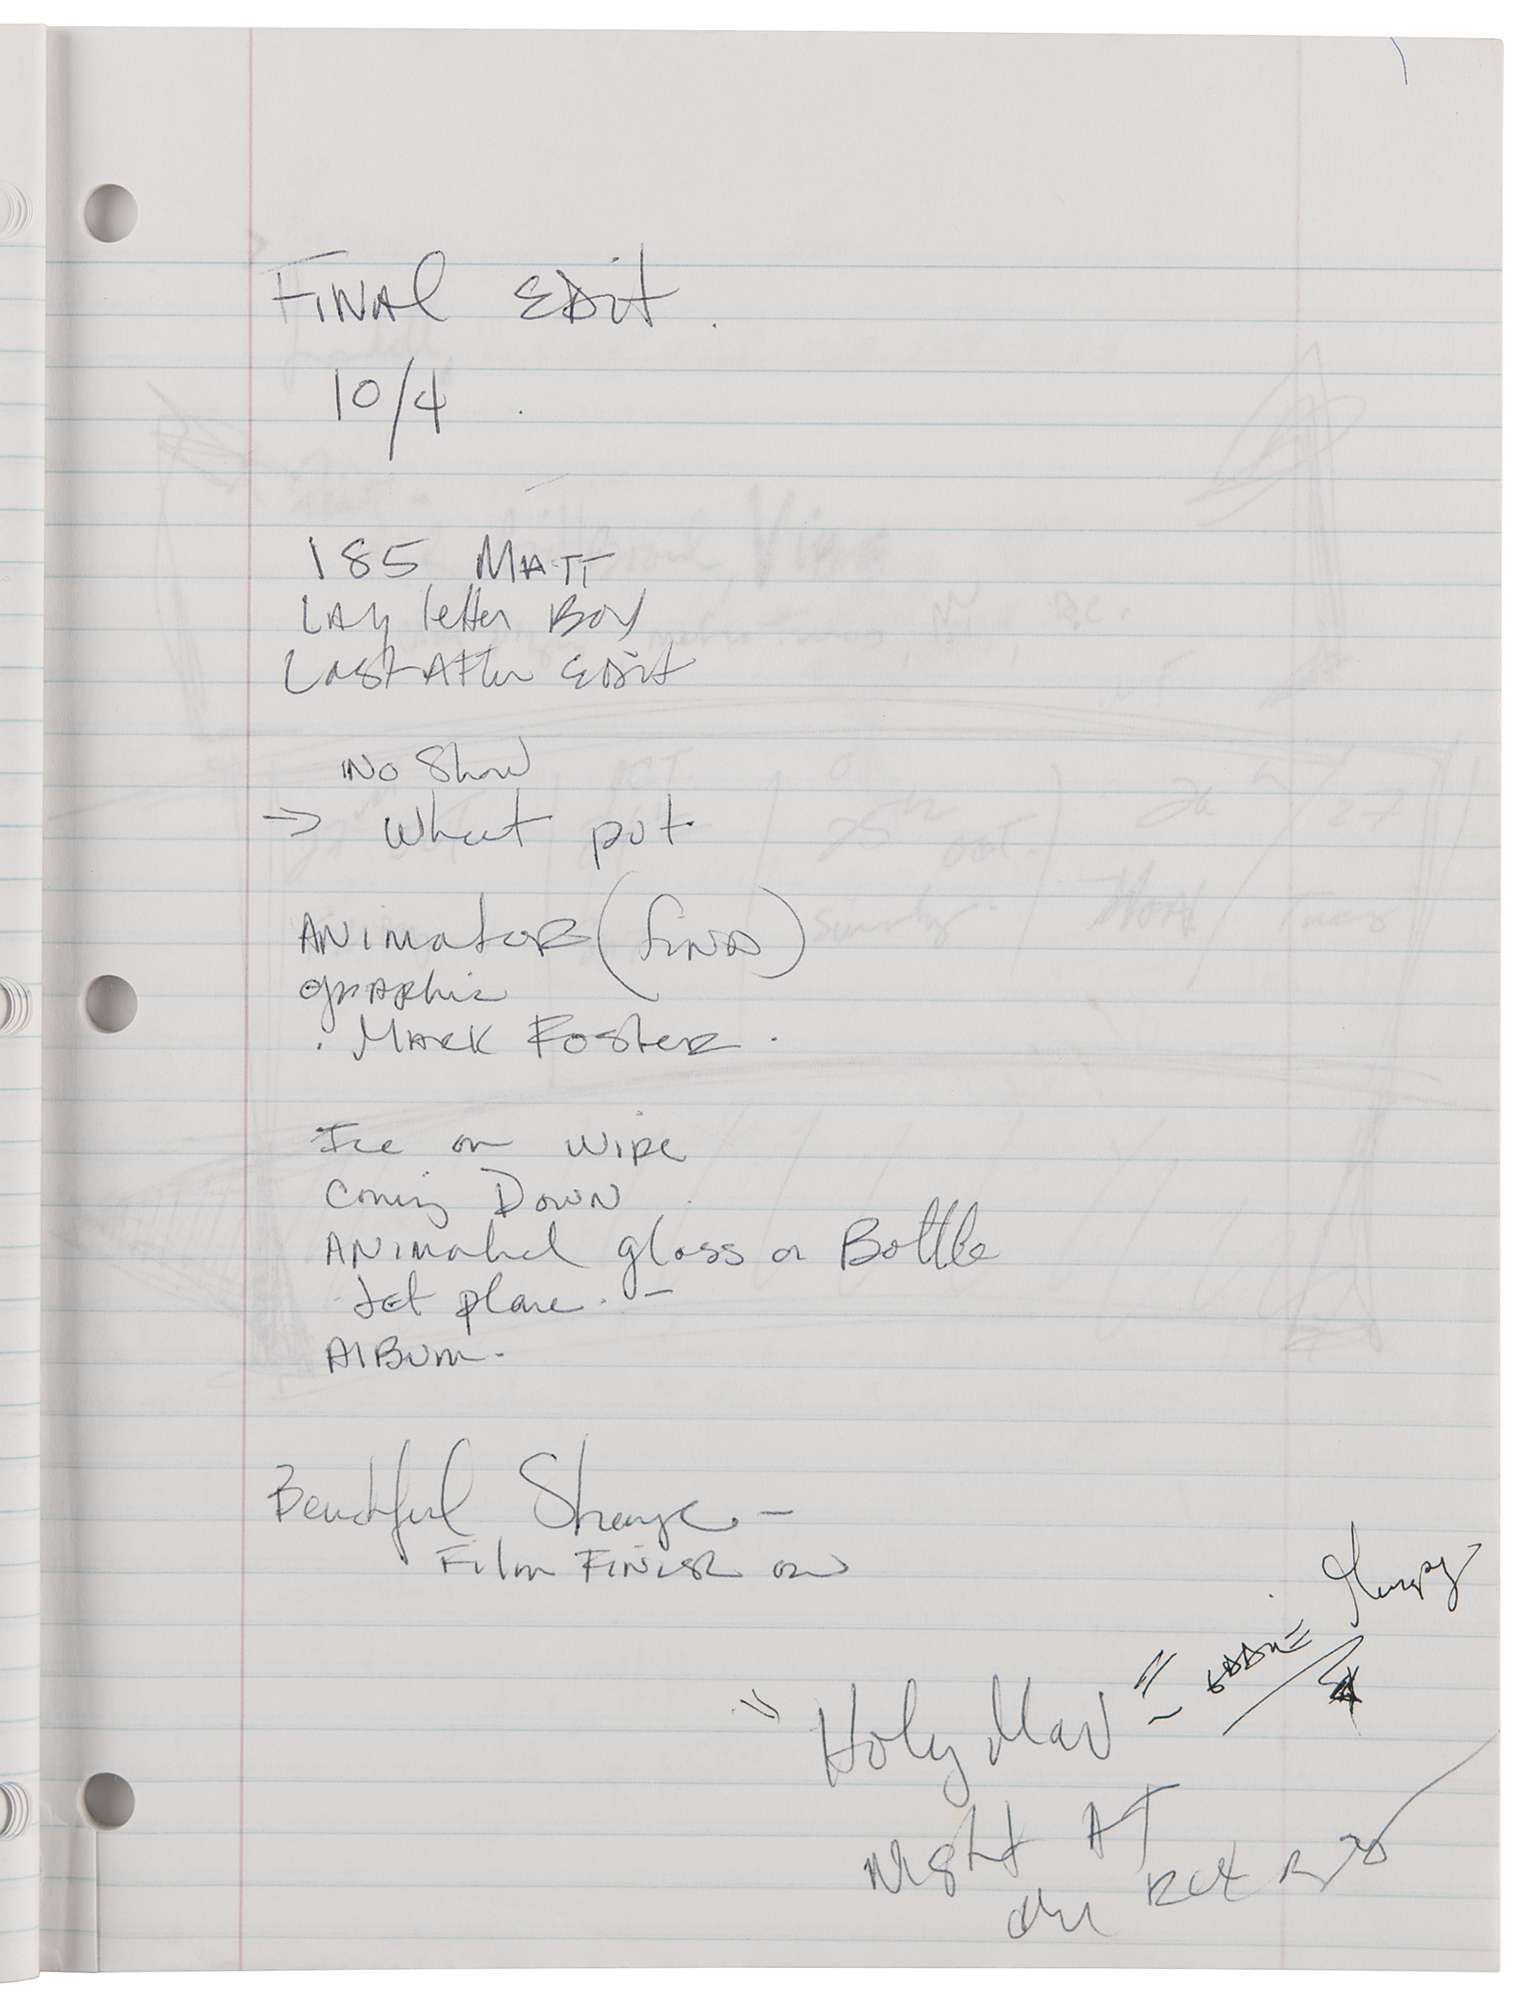 FINAL EDit.
10/4
185 MATT
LAy letter Box
Last After Edit
No Show
→ What put
ANimatOR (find)
graphic
. MARK FosteR.
Ice on wipe
Coming Down
ANimated glass or Bottle
Jet plane. -
AlBum.
Beautiful Strange -
Film FINish on
"Holy Man" - EDDIE Murphy
Night AT
the